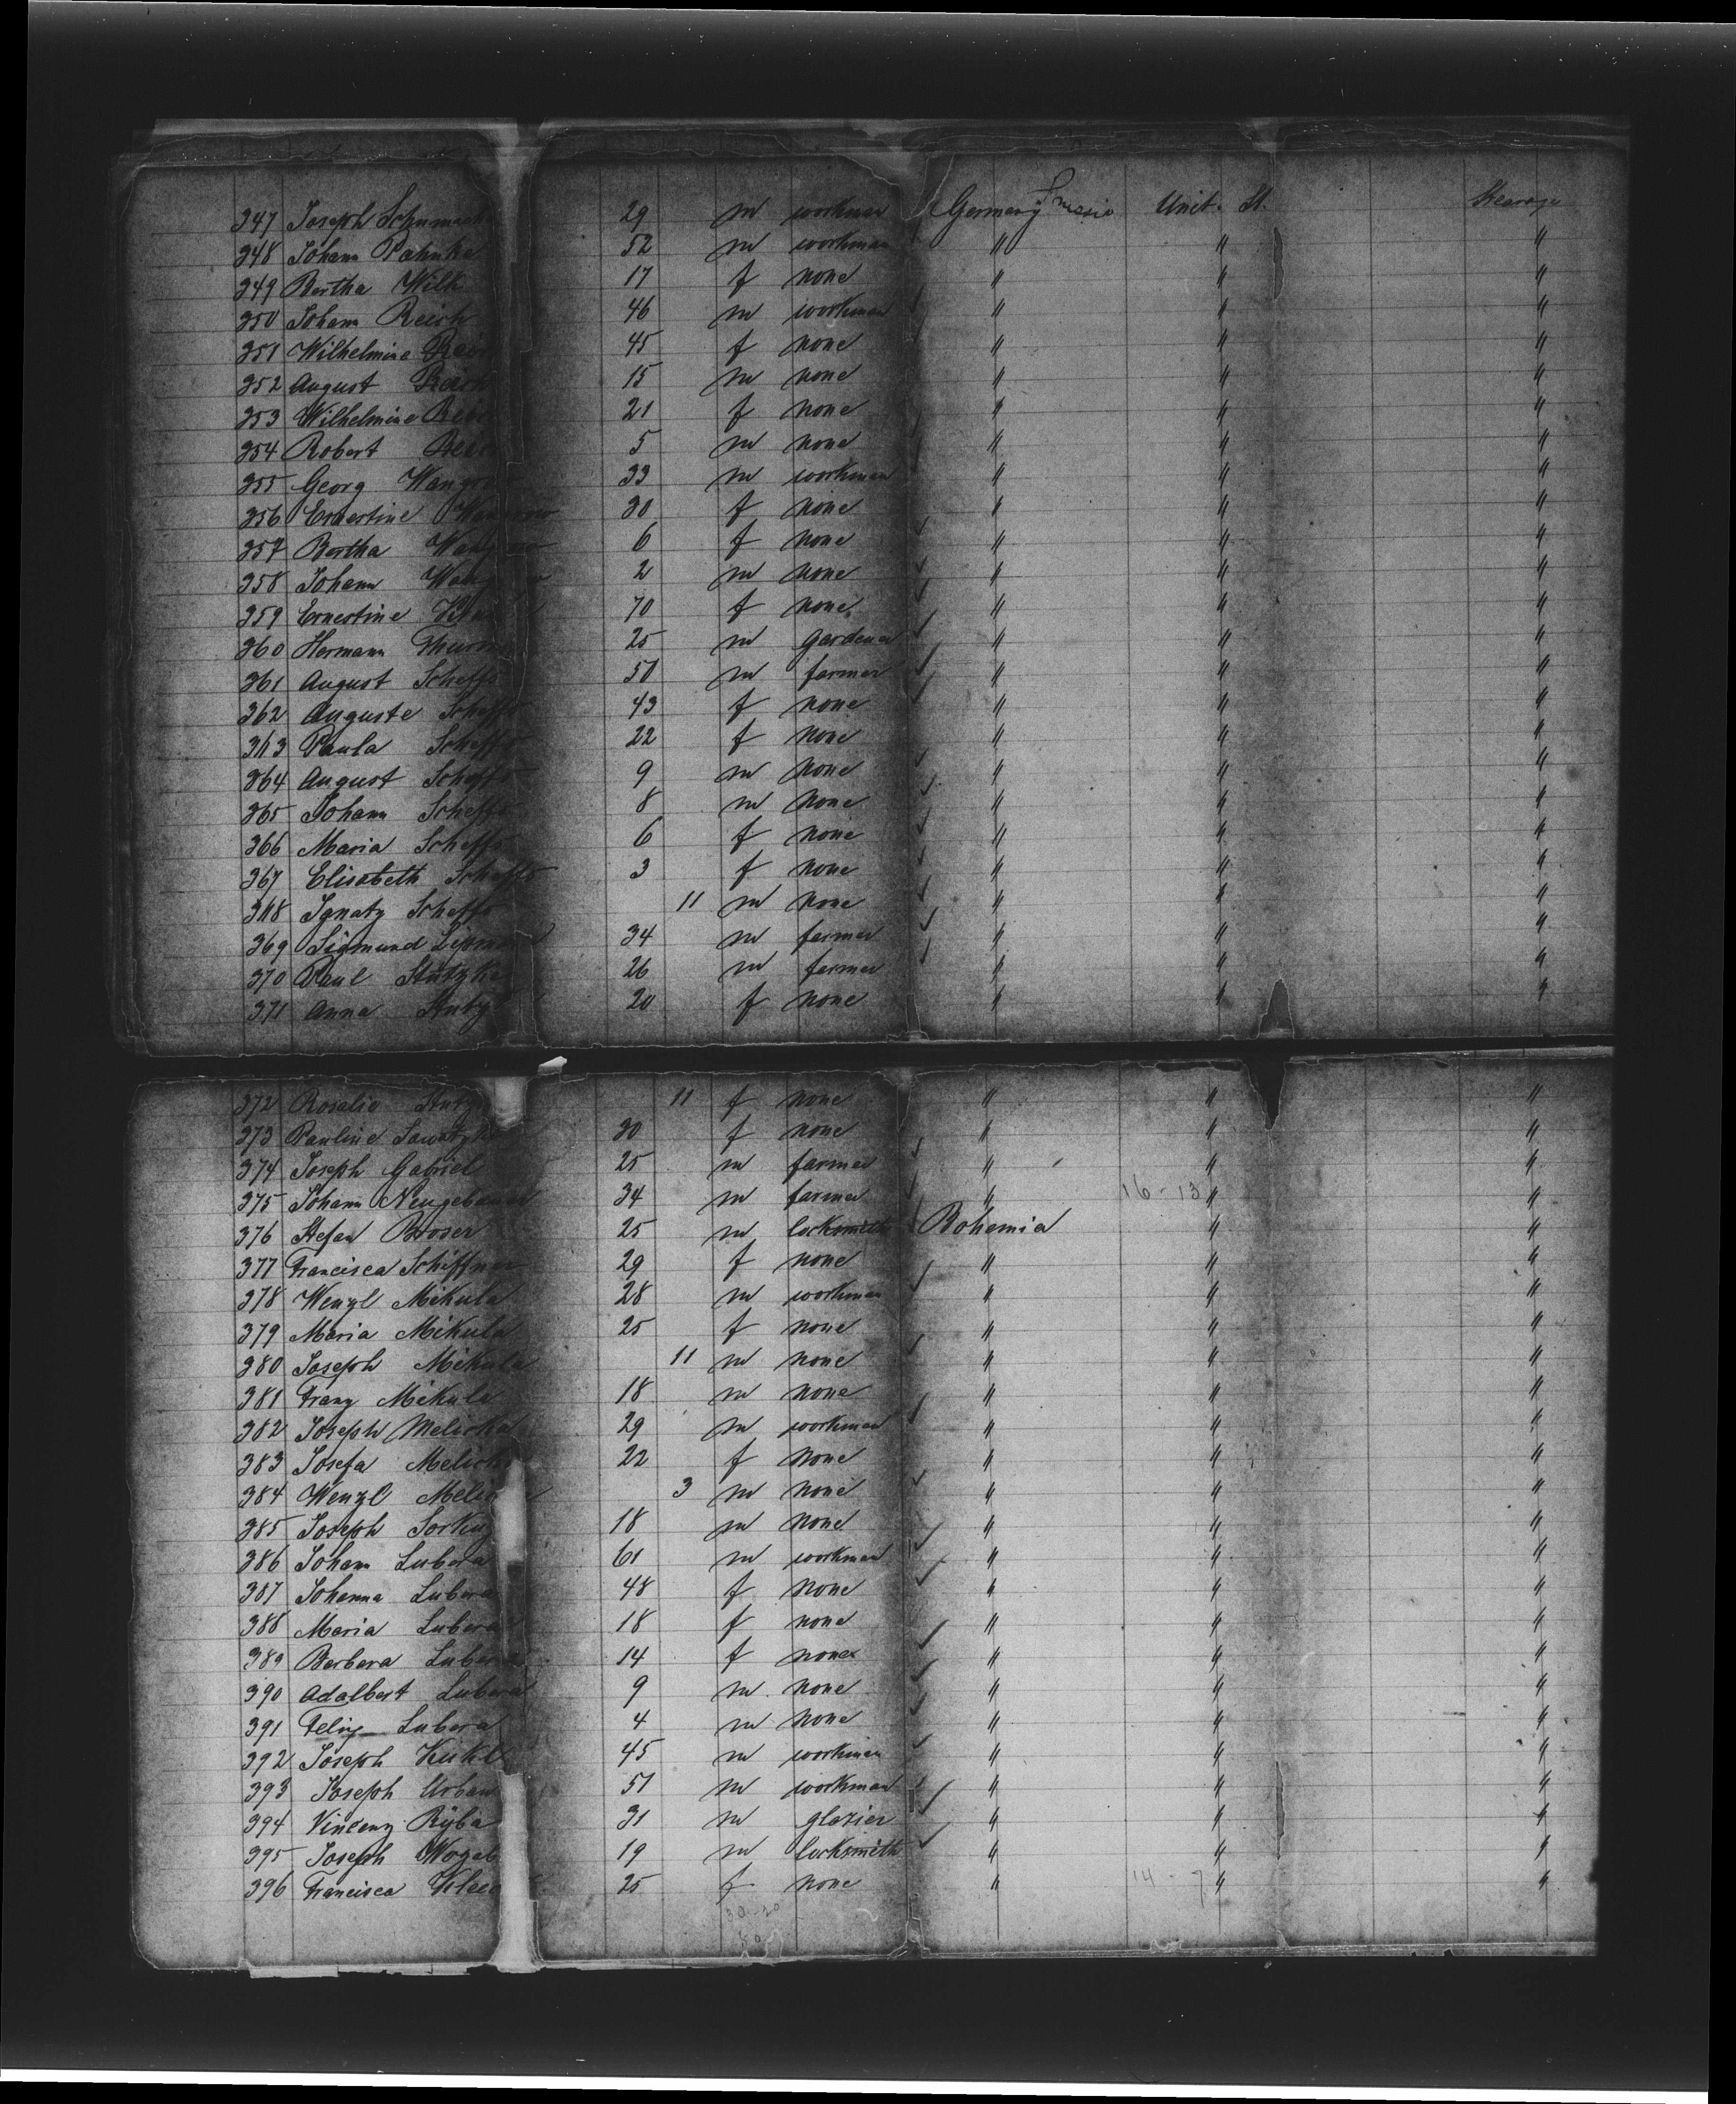 347 Joseph Schumac 29 m workman Germany Prussia Unit. St. Steerage
348 Johann Pahnka 52 m workman " " "
349 Bertha Wilk 17 f none " " "
350 Johann Reich 46 m workman " " "
351 Wilhelmine Rei 45 f none " " "
352 August Reich 15 m none " " "
353 Wilhelmine Rei 21 f none " " "
354 Robert Rei 5 m none " " "
355 Georg Wangr 33 m workman " " "
356 Ernestine 30 f none " " "
357 Bertha Wan 6 f none " " "
358 Johann Wang 2 m none " " "
359 Ernestine 70 f none " " "
360 Hermann 25 m gardener " " "
361 August Scheff 50 m farmer " " "
362 Auguste Scheff 43 f none " " "
363 Paula Scheff 22 f none " " "
364 August Scheff 9 m none " " "
365 Johann Scheff 8 m none " " "
366 Maria Scheff 6 f none " " "
367 Elisabeth Scheff 3 f none " " "
368 Ignatz Scheff 11 m none " " "
369 Sigmund Lipm 34 m farmer " " "
370 Paul Stutzke 26 m farmer " " "
371 Anna Stutz 20 f none " " "
372 Rosalie Stutz 11 f none " " "
373 Pauline Sawatzk 30 f none " " "
374 Joseph Gabriel 25 m farmer " " "
375 Johann Neugebauer 34 m farmer " 16-13 " "
376 Stefan Broser 25 m locksmith Bohemia " "
377 Francisca Schiffner 29 f none " " "
378 Wenzl Mikula 28 m workman " " "
379 Maria Mikula 25 f none " " "
380 Joseph Mikula 11 m none " " "
381 Franz Mikula 18 m none " " "
382 Joseph Melicha 29 m workman " " "
383 Josefa Melich 22 f none " " "
384 Wenzl Melic 3 m none " " "
385 Joseph 18 m none " " "
386 Johann Lubera 61 m workman " " "
387 Johanna Lubera 48 f none " " "
388 Maria Lubera 18 f none " " "
389 Barbara Lubera 14 f none " " "
390 Adalbert Lubera 9 m none " " "
391 Felix Lubera 4 m none " " "
392 Joseph Kukl 45 m workman " " "
393 Joseph Urban 51 m workman " " "
394 Vincenz Ryba 31 m glazier " " "
395 Joseph Wozab 19 m locksmith " " "
396 Francisca Klec 25 f none " 14-7 " "
30-20
50